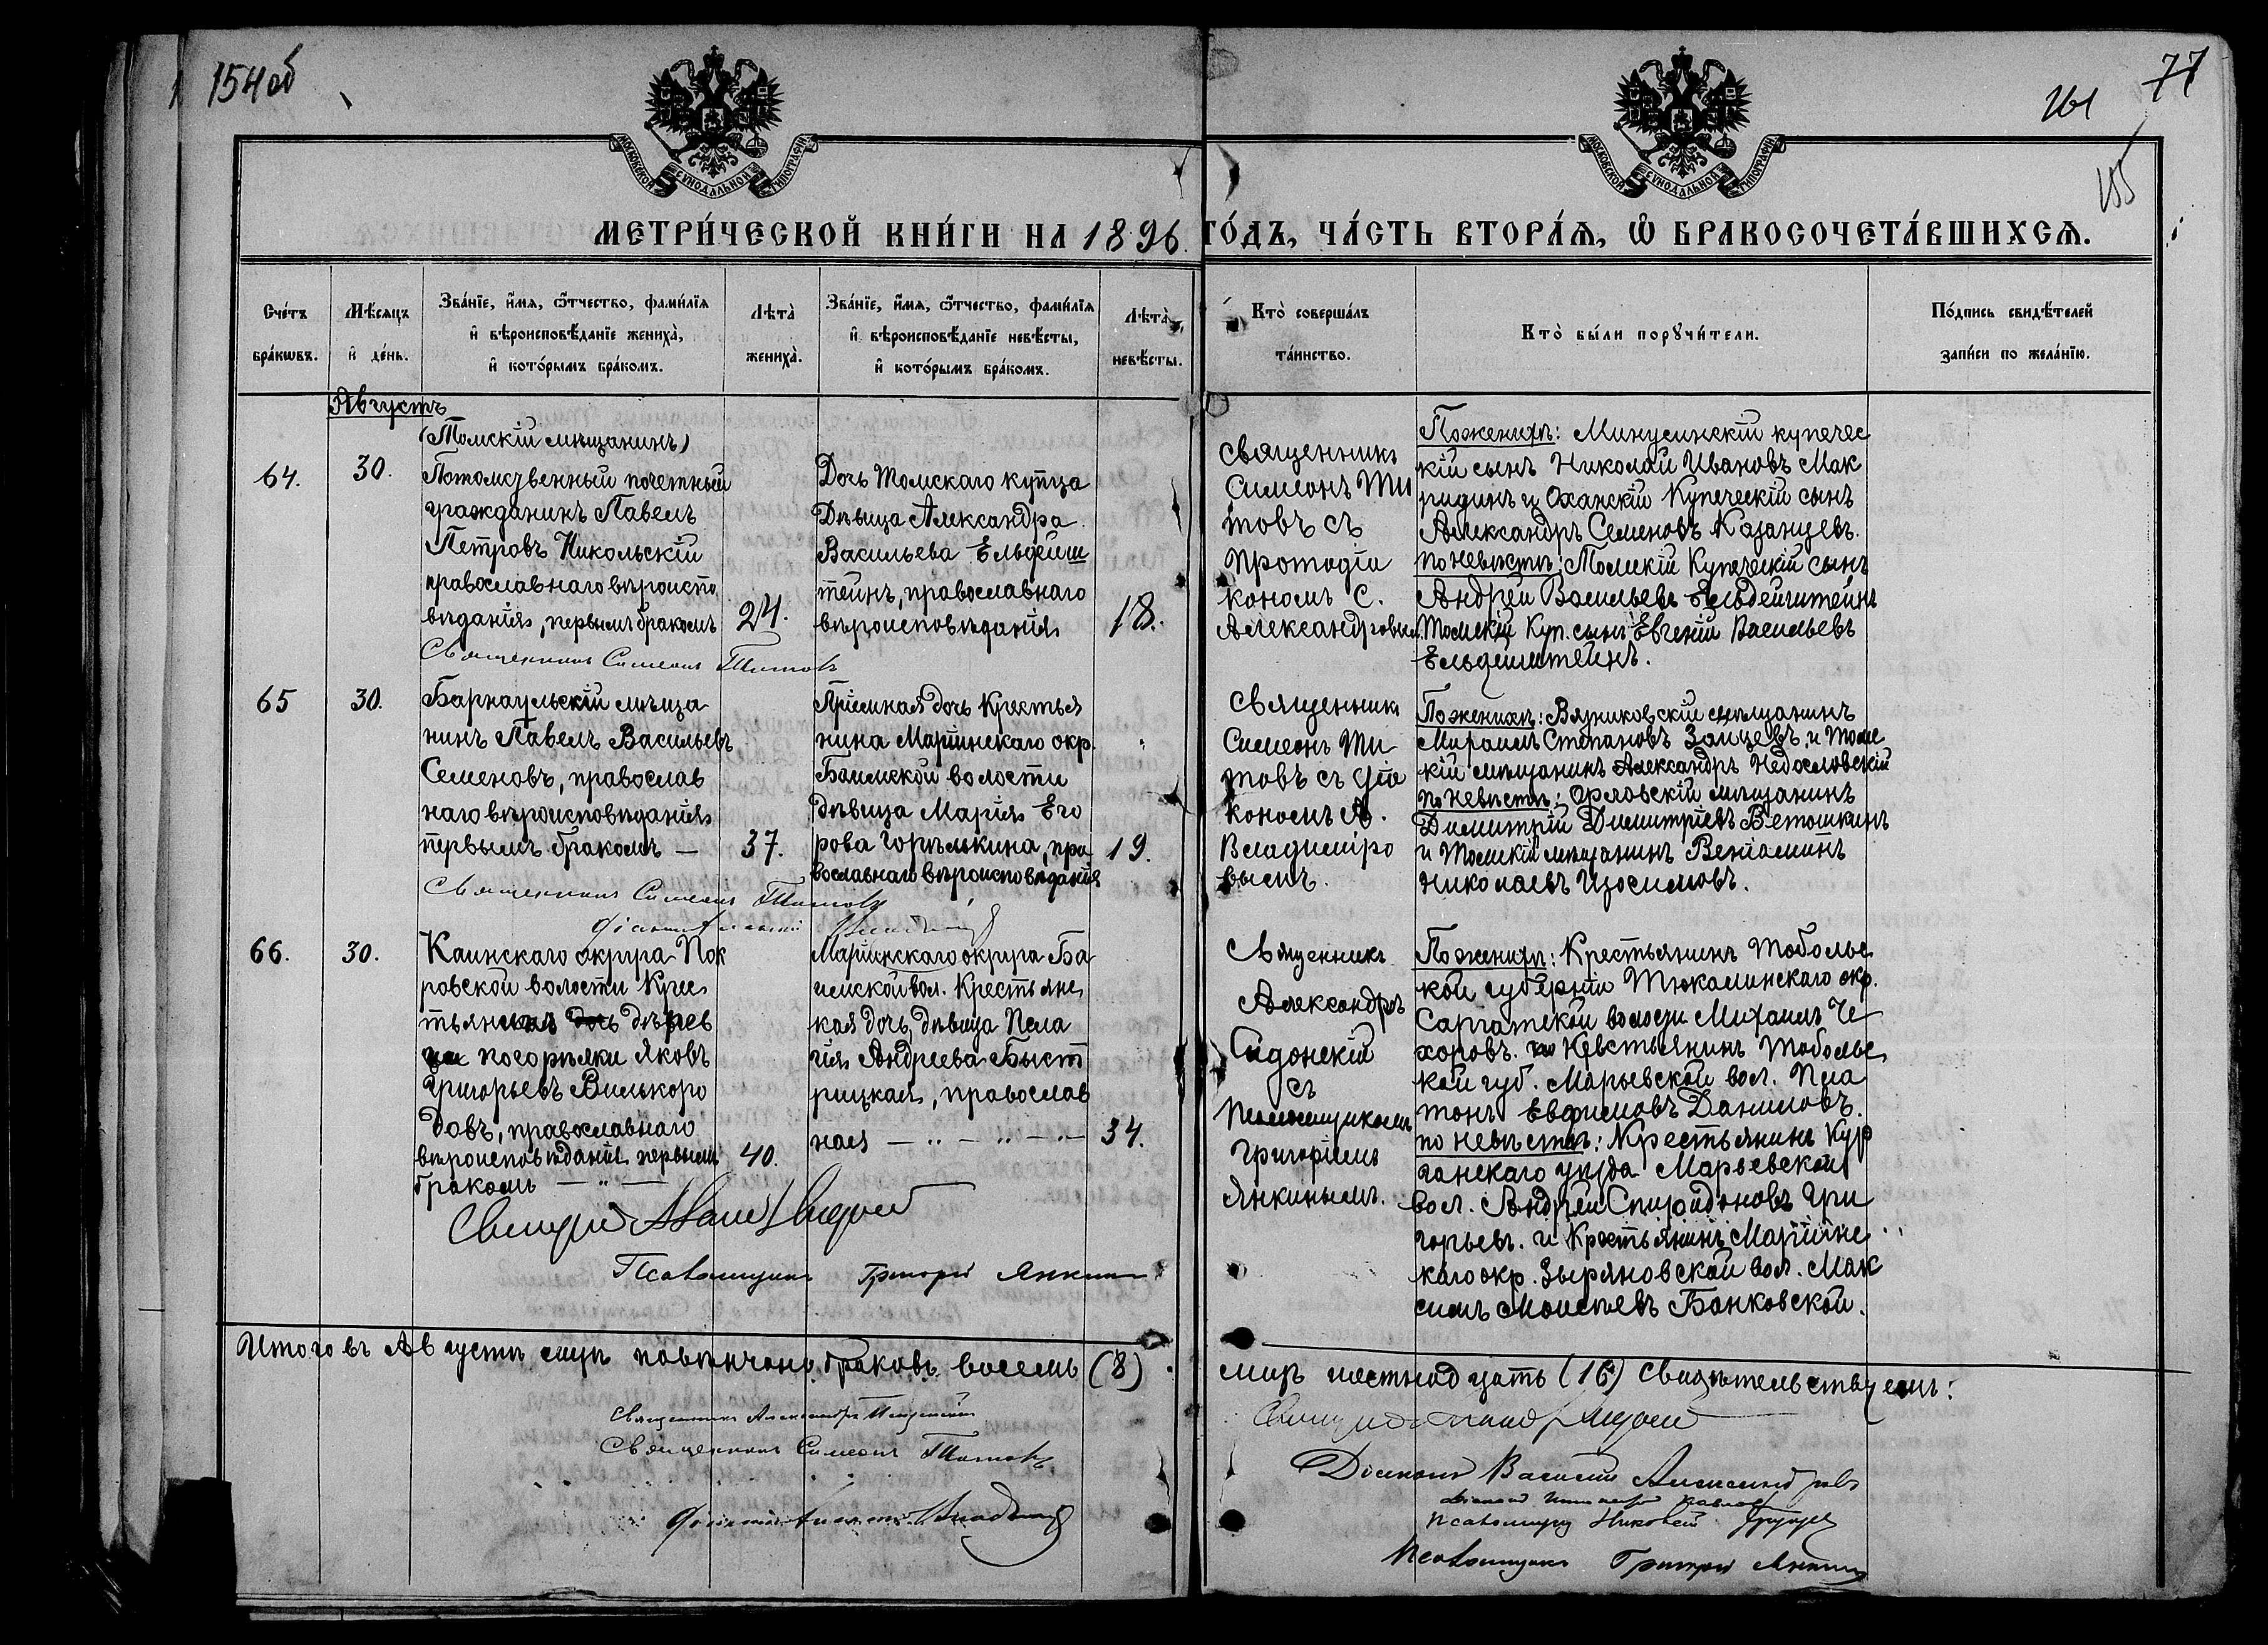 154об
77
161
155
МОСКОВСКОЙ СѴНОДАЛЬНОЙ ТИПОГРАФІИ
МОСКОВСКОЙ СѴНОДАЛЬНОЙ ТИПОГРАФІИ
МЕТРИ́ЧЕСКОЙ КНИ́ГИ НА 1896. ГО́ДЪ, ЧА́СТЬ ВТОРА́Ѧ, Ѡ҆ БРАКОСОЧЕТА́ВШИХСѦ.
Сче́тъ бра́кѡвъ.
Мѣ́сѧцъ и҆ де́нь.
Зва́нїе, и҆́мѧ, ѻ҆́тчество, фами́лїѧ
и҆ вѣроисповѣ́данїе жениха̀,
и҆ кото́рымъ бра́комъ.
Лѣта̀ жениха̀.
Зва́нїе, и҆́мѧ, ѻ҆́тчество, фами́лїѧ
и҆ вѣроисповѣ́данїе невѣ́сты,
и҆ кото́рымъ бра́комъ.
Лѣта̀ невѣ́сты.
Кто̀ соверша́лъ
та́инство.
Кто̀ бы́ли порꙋчи́тели.
По́дпись свидѣ́телей
за́писи по жела́нїю.
Августъ
64.
30.
(Томскій мѣщанинъ)
Потомственный почетный
гражданинъ Павелъ
Петровъ Никольскій
православнаго вѣроиспо
вѣданія, первымъ бракомъ
24.
Дочь Томскаго купца
Дѣвица Александра
Васильева Ельдешш
тейнъ, православнаго
вѣроисповѣданія
18.
Священникъ
Симеонъ Ти
товъ съ
Протодіа
кономъ С.
Александровым
По женихѣ: Минусинскій купечес
кій сынъ Николай Ивановъ Мак
ридинъ и Оханскій Купеческій сынъ
Александръ Семеновъ Казанцевъ.
по невѣстѣ: Томскій Купеческій сынъ
Андрей Васильевъ Ельдештейнъ
Томскій Куп. сынъ Евгеній Васильевъ
Ельдештейнъ.
Священникъ Симеонъ Титовъ
65
30.
Барнаульскій мѣща
нинъ Павелъ Васильевъ
Семеновъ, православ
наго вѣроисповѣданія
первымъ бракомъ —
37.
Пріемная дочь Крестья
нина Маріинскаго окр.
Баимской волости
дѣвица Марія Его
рова Горѣлькина, пра
вославнаго вѣроисповѣданія
19.
Священникъ
Симеонъ Ти
товъ съ Діа
кономъ А.
Владиміро
вымъ.
По женихѣ: Вязниковскій мѣщанинъ
Мираимъ Степановъ Зайцевъ, и Томс
кій мѣщанинъ Александръ Недословскій
по невѣстѣ: Орловскій мѣщанинъ
Димитрій Димитріевъ Ветошкинъ
и Томскій мѣщанинъ Веніаминъ
Николаевъ Изосимовъ.
Священникъ Симеонъ Титовъ
66.
30.
Каинскаго округа Пок
ровской волости Крес
деревни погорѣлки Яковъ
Григорьевъ Вилькоро
довъ, православнаго
вѣроисповѣданія первымъ
бракомъ — " —
40.
Маріинскаго округа Ба
имской вол. Крестьянс
кая дочь, дѣвица Пела
гія Андреева Быст
рицкая, православ
ная — " — " — " —
34.
Священникъ
Александръ
Сидонскій
съ
Псаломщикомъ
Григоріемъ
Янкинымъ.
По женихѣ: Крестьянинъ Тобольс
кой губерніи Тюкалинскаго окр.
Саргатской волости Михаилъ Че
хоровъ. Крестьянинъ Тобольс
кой губ. Марьевской вол. Пла
тонъ Евфимовъ Даниловъ.
по невѣстѣ: Крестьянинъ Кур
ганскаго уѣзда Марьевской
вол. Андрей Спиридоновъ Гри
горьевъ. и Крестьянинъ Маріинс
каго окр. Зыряновской вол. Мак
симъ Моисеевъ Банковской.
Псаломщикъ Григорій Янкинъ
Итого въ Августѣ мцѣ повѣнчано браковъ восемь (8)
лицъ шестнадцать (16) Свидѣтельствуемъ:
Священникъ Симеонъ Титовъ
Діаконъ Василій Александровъ
Псаломщикъ Николай
Псаломщикъ Григорій Янкинъ